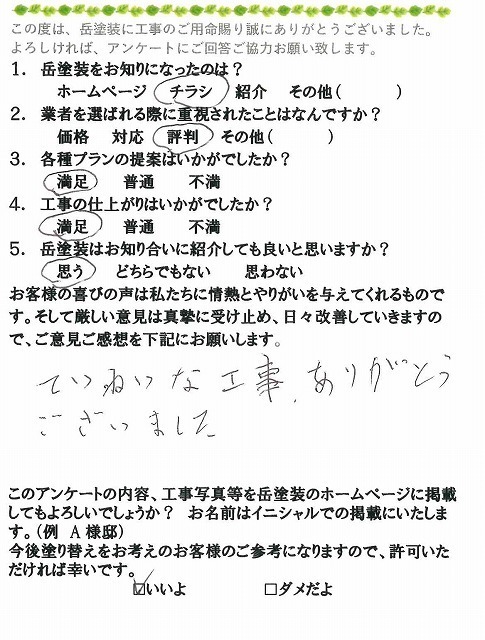 この度は、岳塗装に工事のご用命賜り誠にありがとうございました。
よろしければ、アンケートにご回答ご協力お願い致します。
1. 岳塗装をお知りになったのは？
ホームページ チラシ 紹介 その他( )
2. 業者を選ばれる際に重視されたことはなんですか？
価格 対応 評判 その他( )
3. 各種プランの提案はいかがでしたか？
満足 普通 不満
4. 工事の仕上がりはいかがでしたか？
満足 普通 不満
5. 岳塗装はお知り合いに紹介しても良いと思いますか？
思う どちらでもない 思わない
お客様の喜びの声は私たちに情熱とやりがいを与えてくれるもので
す。そして厳しい意見は真摯に受け止め、日々改善していきますの
で、ご意見ご感想を下記にお願いします。
ていねいな工事、ありがとう
ございました
このアンケートの内容、工事写真等を岳塗装のホームページに掲載
してもよろしいでしょうか？ お名前はイニシャルでの掲載にいたしま
す。(例 A 様邸)
今後塗り替えをお考えのお客様のご参考になりますので、許可いた
だければ幸いです。
☑いいよ □ダメだよ